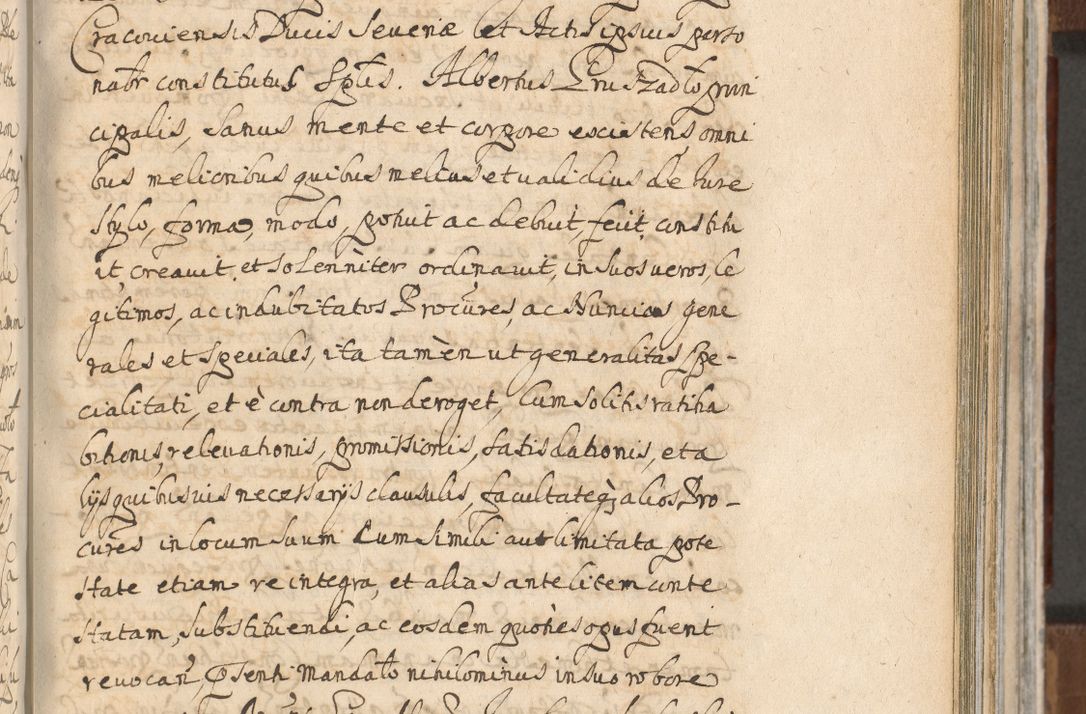 Cracoviensis Ducis Severiæ et Actis ipsius perso
nalr constitutus Spls. Albertus Prus Zadło prin
cipalis, sanus mente et corpore existens omni
bus melioribus quibus melius et validius de Iure
stylo, forma, modo, potuit ac debuit, fecit, constitu
it, creavit, et solenniter ordinavit, in suos veros, le
gitimos, ac indubitatos Procures, ac Nuncios gene
rales et speciales, ita tamèn ut generalitas spe-
cialitati, et è contra non deroget, Cum solitis ratiha
bitionis, relevationis, promissionis, satisdationis, et a
lijs quibusvis necessarijs clausulis, facultateq alios Pro-
cures in locum suum Cum simili aut limitata pote
state etiam re integra, et alias ante litem conte
statam, substituendi, ac eosdem quoties opus fuerit
revocan, Psenti Mandato nihilominus in suo robore